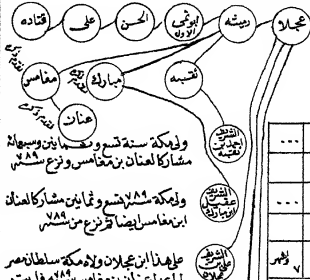 عجلان
رميثة
ابو نمى الاول
الحسن
على
قتادة
ثقبه
مبارك
مغامس
عنان
الشريف احمد بن ثقبه
ولى مكة سنة تسع وثمانين وسبعمائة
مشاركا لعنان بن مغامس ونزع سنة ٧٨٩
الشريف عقيل ابن مبارك
ولى مكة سنة ٧٨٩ تسع وثمانين مشاركا لعنان
ابن مغامس ايضا ثم نزع من سنة ٧٨٩
الشريف على عجلان
على هذا ابن عجلان ولاه مكة سلطان مصر